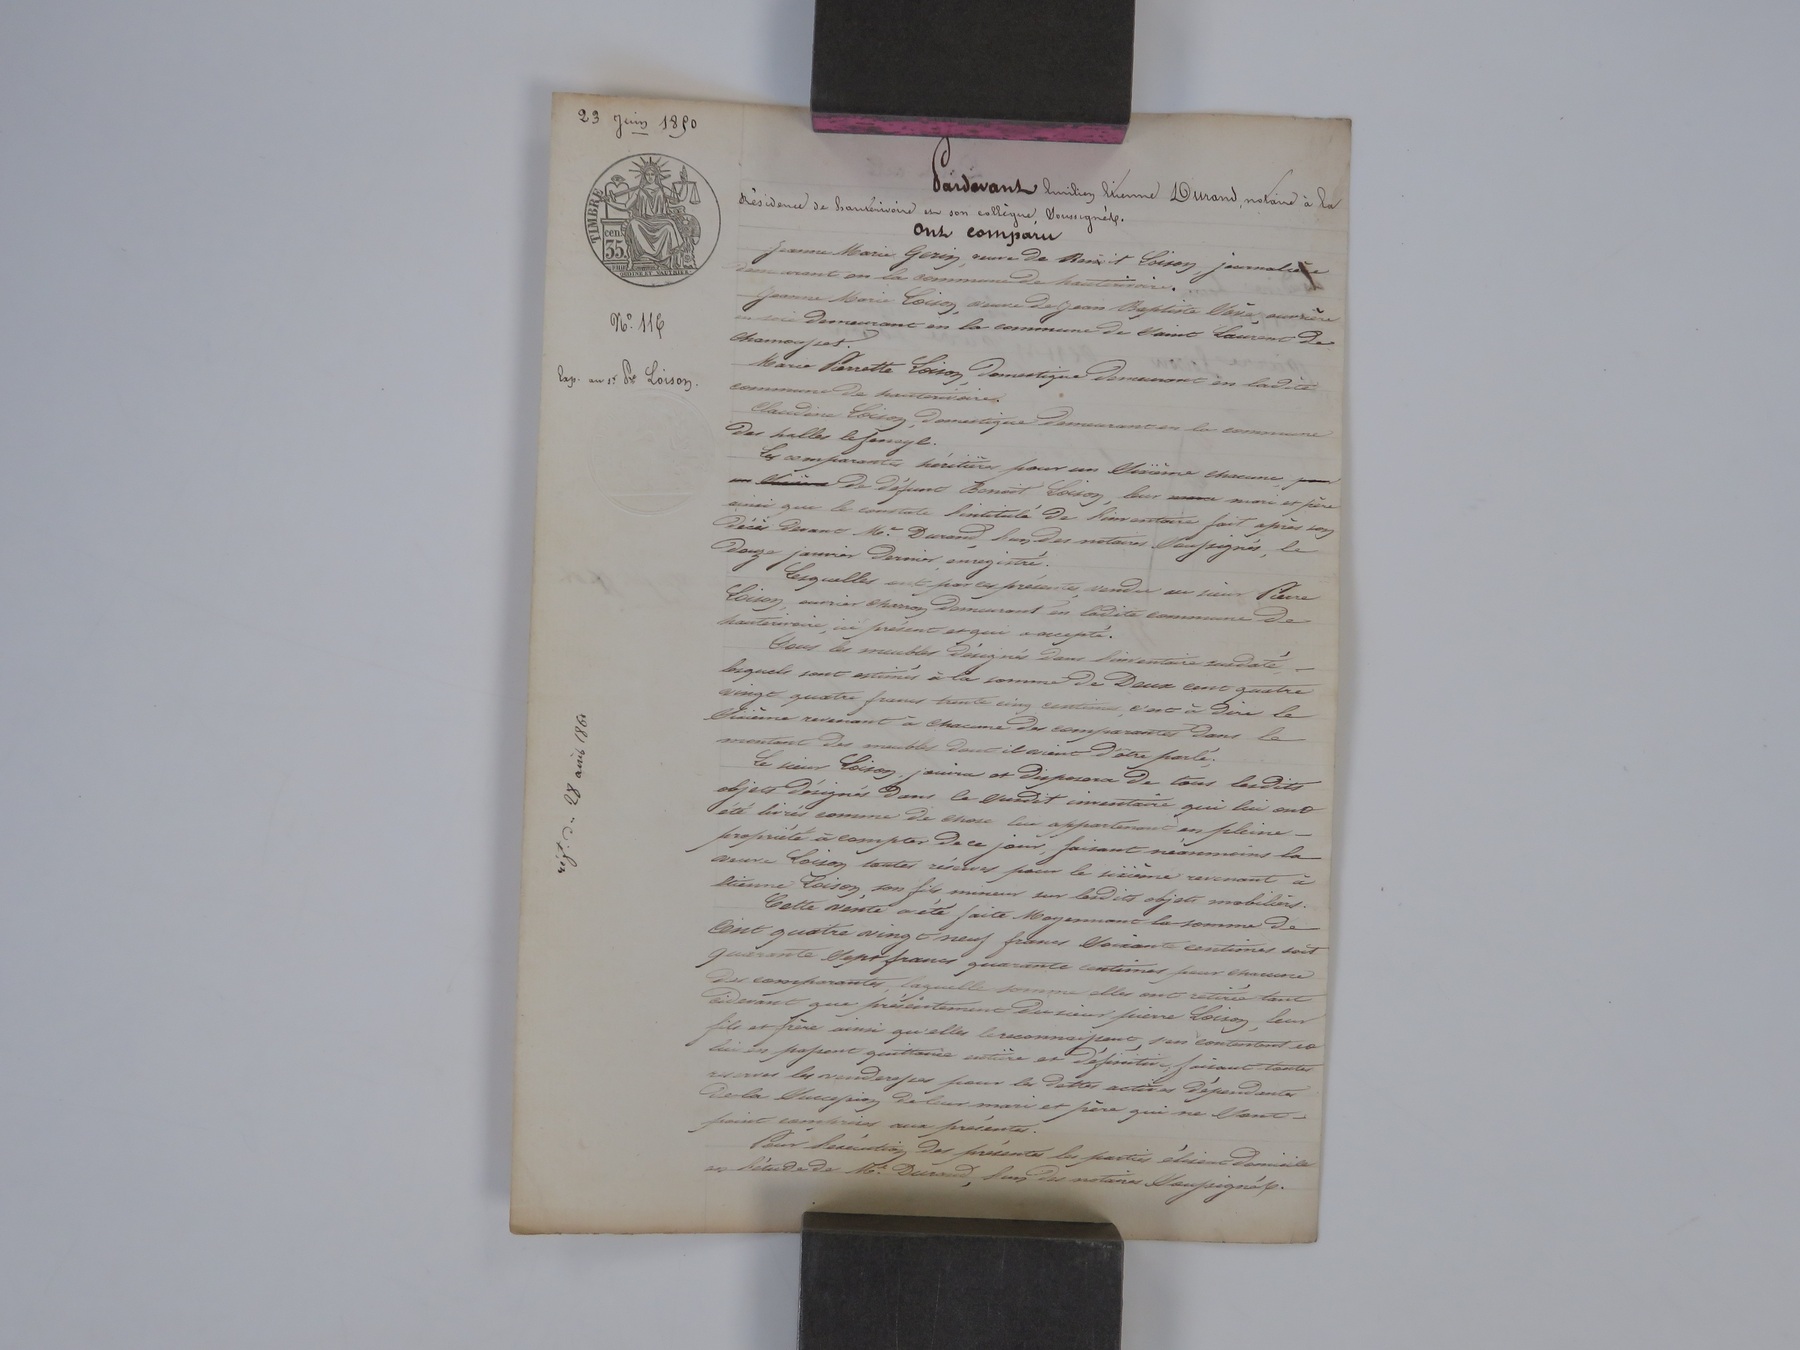 23 Juin 1850
TIMBRE
cen.
35
N° 116
Exp. au sr. Pre Loison.
28 août 1861
Pardevant Emilien Etienne Durand, notaire à la
Résidence de hauterivoire et son collègue, soussignés.
Ont comparu
Jeanne Marie Gerin, veuve de Benoit Loison, journalière
demeurante en la commune de hauterivoire.
Jeanne Marie Loison, veuve de Jean Baptiste ouvrière
en soie demeurant en la commune de Saint Laurent de
Chamousset.
Marie Pierrette Loison, domestique demeurant en ladite
commune de hauterivoire.
Claudine Loison, domestique demeurant en la commune
des halles le fenoyl.
Les comparantes héritières pour un Sixième chacune pour
un Sixième de défunt Benoit Loison, leur mari et père
ainsi que le constate l'intitulé de l'inventaire fait après son
décès devant Me Durand, l'un des notaires Soussignés, le
douze janvier dernier, enregistré.
Lesquelles ont par ces présentes, vendu au sieur Pierre
Loison, ouvrier charron demeurant en ladite commune de
hauterivoire, ici présent et qui accepte.
Tous les meubles désignés dans l'inventaire susdaté,
lesquels sont estimés à la somme de Deux cent quatre
vingt quatre francs trente cinq centimes, c'est à dire le
Sixième revenant à chacune des comparantes dans le
montant des meubles dont il vient d'être parlé.
Le sieur Loison, jouira et disposera de tous lesdits
objets désignés dans le susdit inventaire qui lui ont
été livrés comme de chose lui appartenant en pleine
propriété à compter de ce jour, faisant néanmoins la
veuve Loison toutes réserves pour le sixième revenant à
Etienne Loison, son fils mineur sur lesdits objets mobiliers.
Cette vente a été faite Moyennant la somme de
Cent quatre vingt neuf francs Soixante centimes soit
quarante Sept francs quarante centimes pour chacune
des comparantes, laquelle somme elles ont retirée tant
cidevant que présentement du sieur pierre Loison, leur
fils et frère ainsi qu'elles le reconnaissent, s'en contentent et
lui en passent quittance entière et définitive, faisant toutes
réserves les venderesses pour les dettes actives dépendantes
de la Succession de leur mari et père qui ne Sont
point comprises aux présentes.
Pour l'exécution des présentes les parties élisent domicile
en l'étude de Me Durand, l'un des notaires Soussignés.